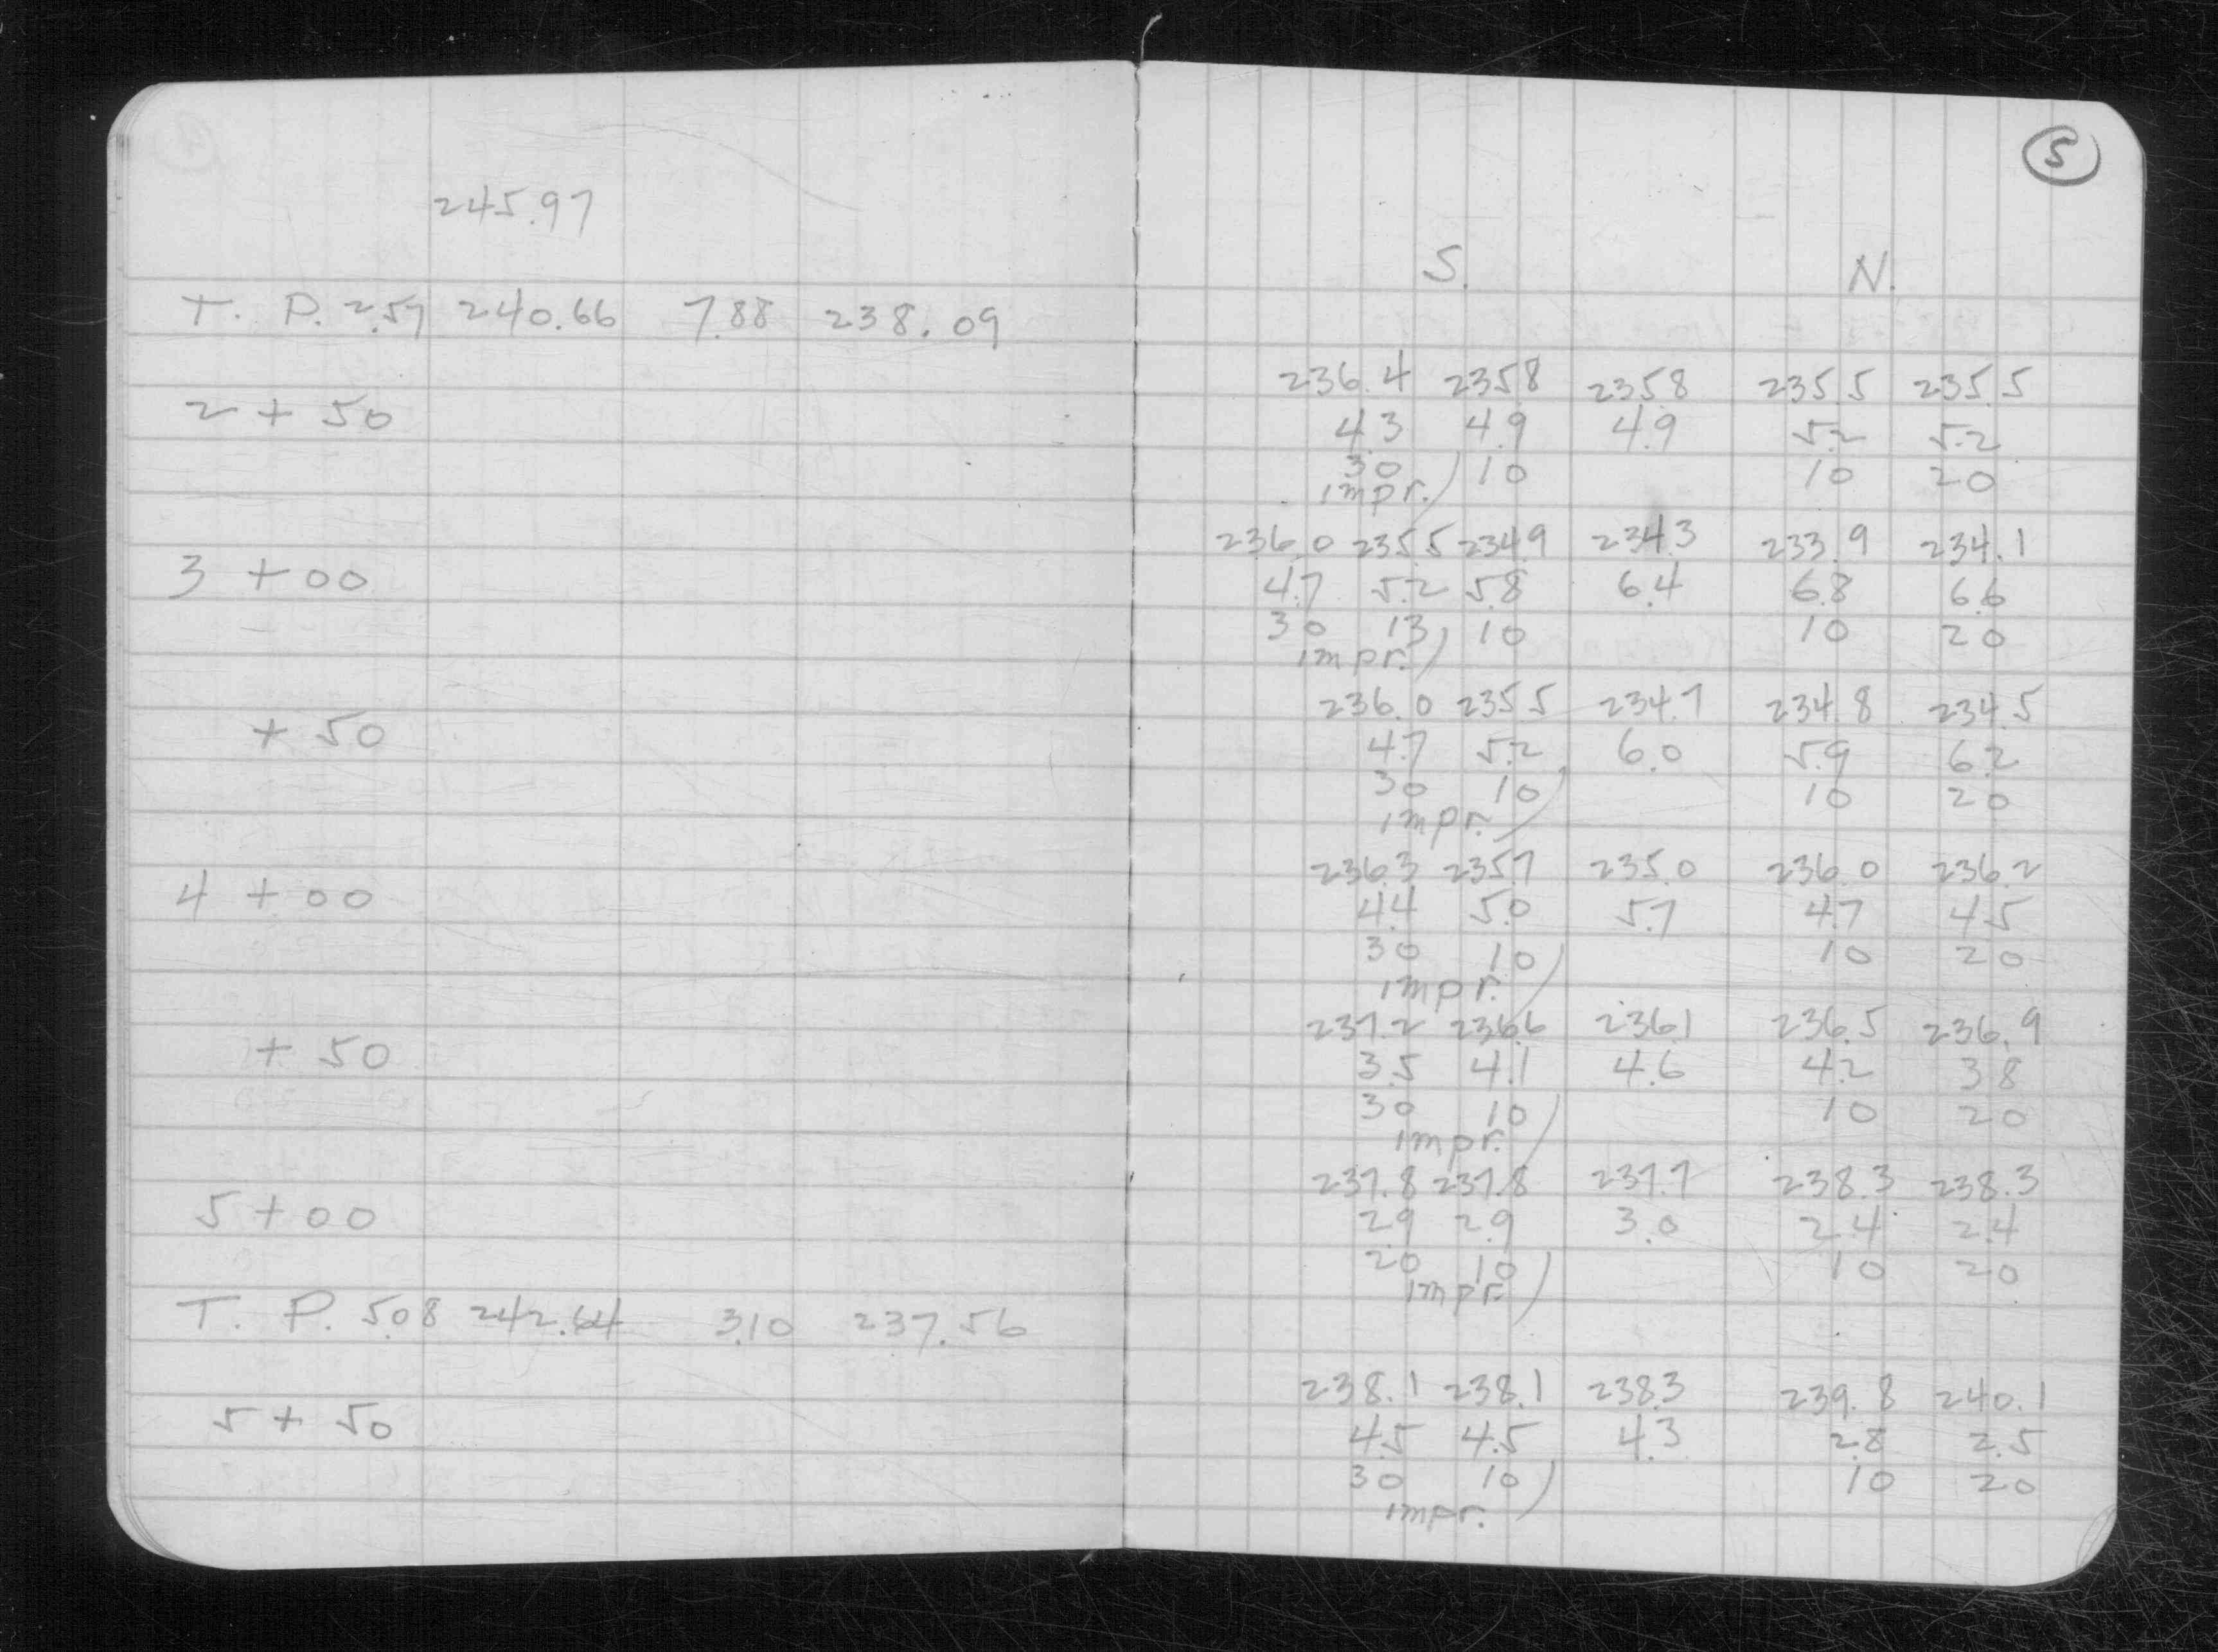 245.97
T. P. 2.57 240.66 7.88 238.09
2 + 50
3 + 00
+ 50
4 + 00
+ 50
5 + 00
T. P. 5.08 242.64 3.10 237.56
5 + 50
5
S. N.
236.4 235.8 235.8 235.5 235.5
4.3 4.9 4.9 5.2 5.2
30 10 10 20
impr.)
236.0 235.5 234.9 234.3 233.9 234.1
4.7 5.2 5.8 6.4 6.8 6.6
30 13 10 10 20
impr.)
236.0 235.5 234.7 234.8 234.5
4.7 5.2 6.0 5.9 6.2
30 10 10 20
impr.)
236.3 235.7 235.0 236.0 236.2
4.4 5.0 5.7 4.7 4.5
30 10 10 20
impr.)
237.2 236.6 236.1 236.5 236.9
3.5 4.1 4.6 4.2 3.8
30 10 10 20
impr.)
237.8 237.8 237.7 238.3 238.3
2.9 2.9 3.0 2.4 2.4
20 10 10 20
impr.)
238.1 238.1 238.3 239.8 240.1
4.5 4.5 4.3 2.8 2.5
30 10 10 20
impr.)